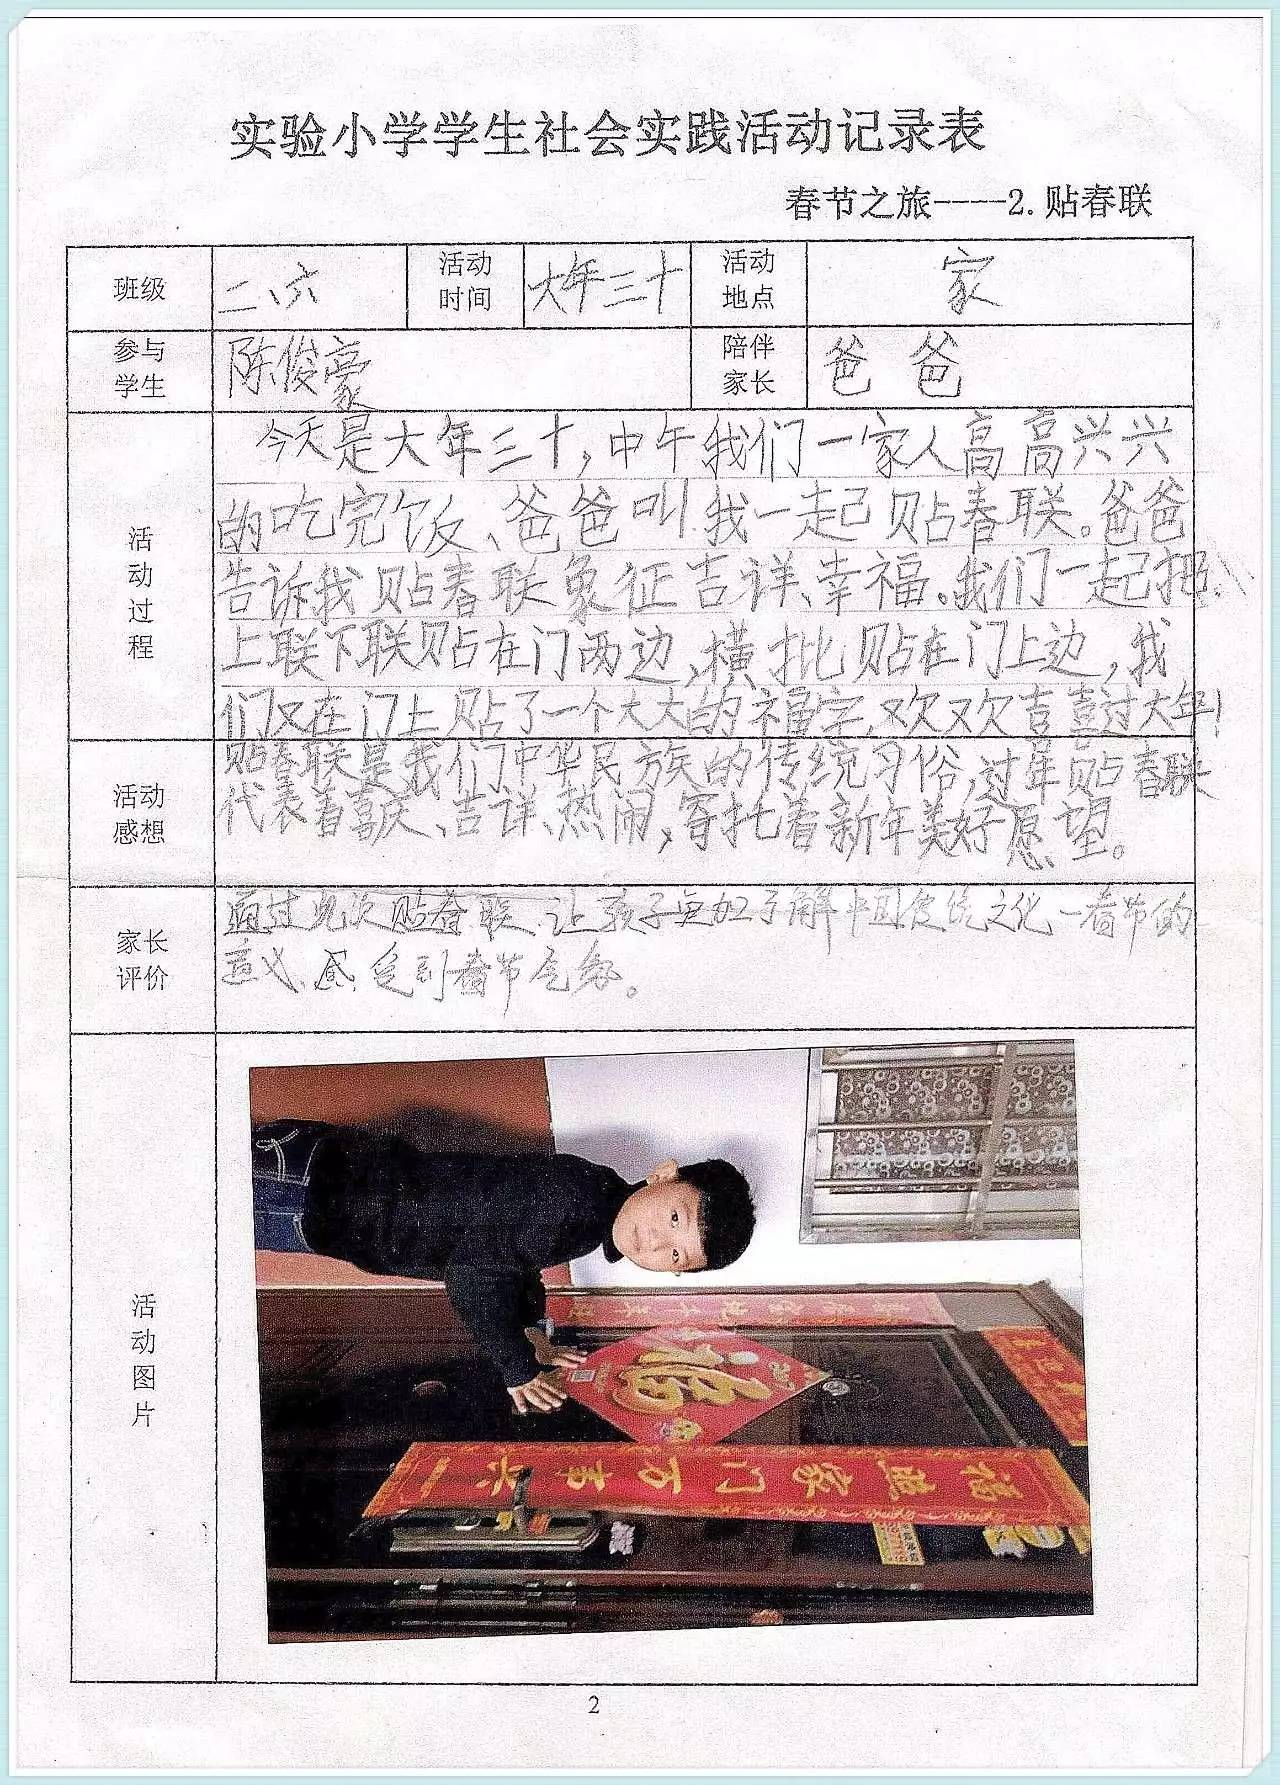 实验小学学生社会实践活动记录表
春节之旅----2.贴春联
班级 二、六 活动时间 大年三十 活动地点 家
参与学生 陈俊豪 陪伴家长 爸爸
活动过程
今天是大年三十，中午我们一家人高高兴兴
的吃完饭、爸爸叫我一起贴春联。爸爸
告诉我贴春联象征吉详、幸福。我们一起把
上联下联贴在门两边，横批贴在门上边，我
们又在门上贴了一个大大的福字，欢欢喜喜过大年！
活动感想
贴春联是我们中华民族的传统习俗，过年贴春联
代表着喜庆、吉详、热闹，寄托着新年美好愿望。
家长评价
通过此次贴春联、让孩子更加了解中国传统文化—春节的
意义、感受到春节气象。
活动图片
福
福照家门万事兴
2